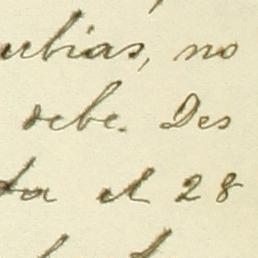 ubias, no
debe. Des
ta el 28